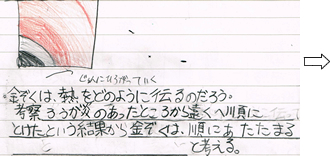 じゅんになっていく
金ぞくは、熱をどのように伝るのだろう。
考察 ろうが火のあったところから遠くへ順に
とけたという結果から金ぞくは、順にあたたまる
と考える。